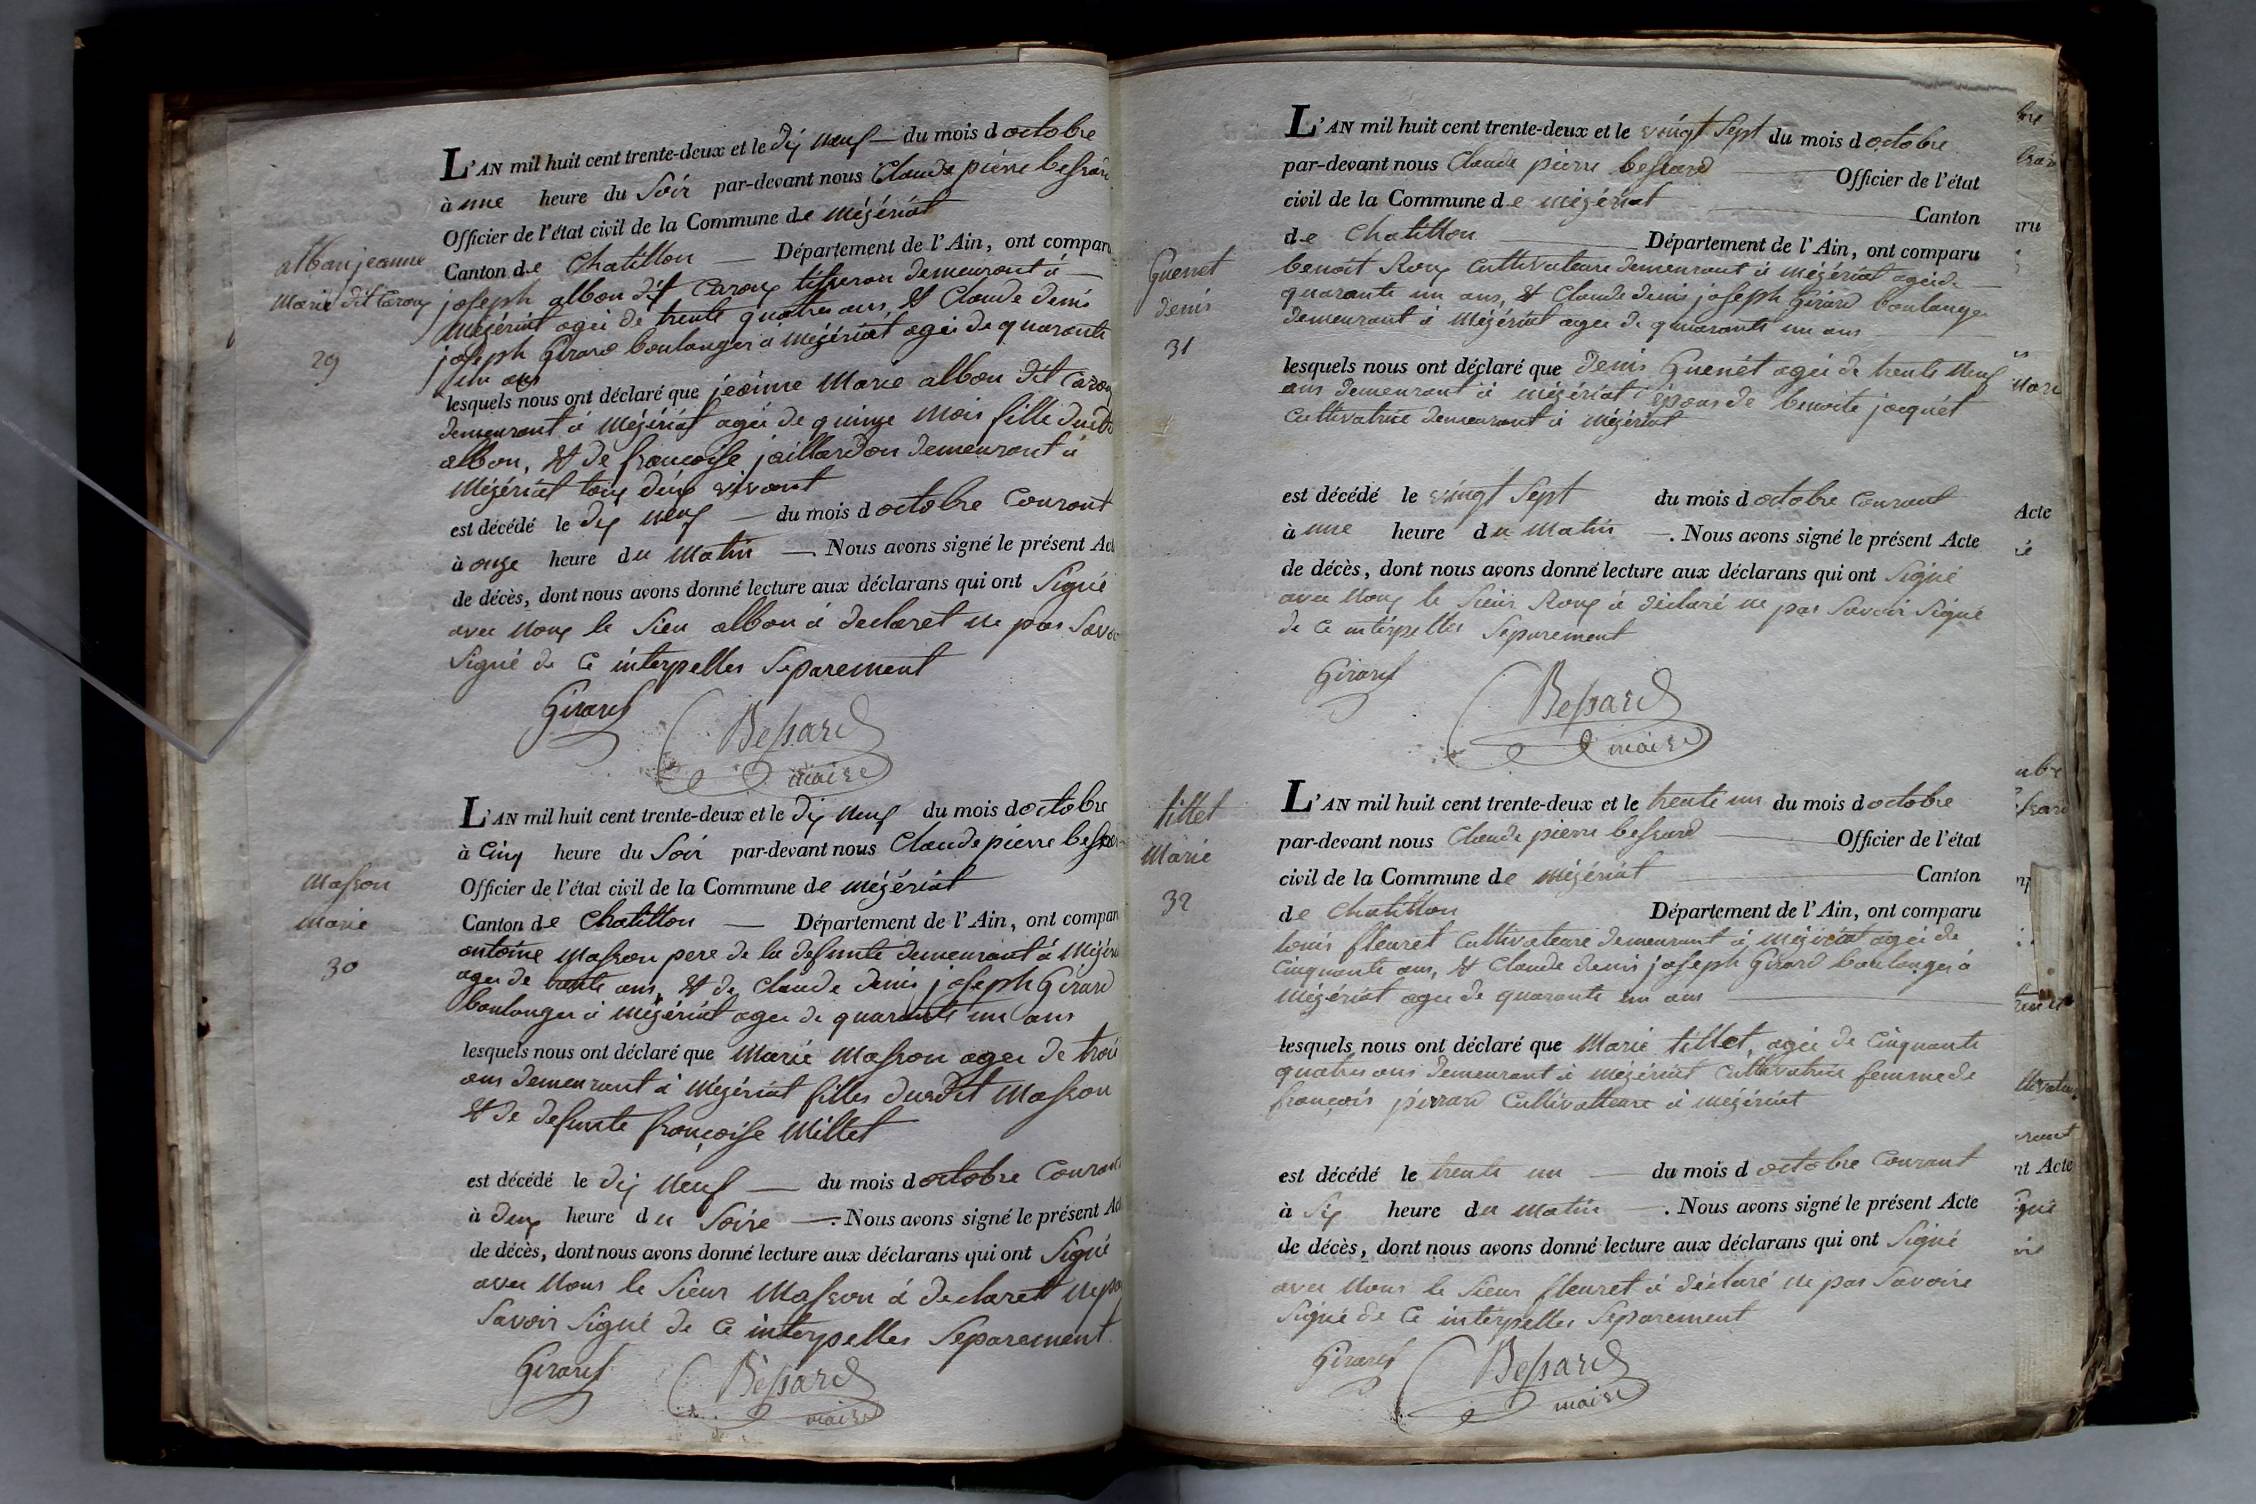 L'AN mil huit cent trente-deux et le dix neuf — du mois d octobre
à une heure du Soir par-devant nous Claude pierre bessard
Officier de l'état civil de la Commune de mézériat
Canton de Chatillon — Département de l'Ain, ont comparu
joseph albon dit Caroux tisseran demeurant à —
Mézériat agée de trente quatres ans, & Claude denis
joseph Girard boulanger à mézériat agée de quarante
un ans
albon jeanne
Marie dit Caroux
29
lesquels nous ont déclaré que jeanne Marie albon dit Caroux
demeurant à Mézériat agée de quinze mois fille dudit
albon, & de françoise jaillardon demeurant à
Mézériat tous deux vivant
est décédé le dix neuf — du mois d octobre Courant
à onze heure du Matin — Nous avons signé le présent Acte
de décès, dont nous avons donné lecture aux déclarans qui ont Signé
avec Nous le Sieu albon à declaret ne pas Savoi
Signé de Ce interpelles Separement
Girard
Bessard
maire
L'AN mil huit cent trente-deux et le dix neuf du mois d octobre
à Cinq heure du Soir par-devant nous Claude pierre bessar
Officier de l'état civil de la Commune de mézériat
Canton de Chatillon — Département de l'Ain, ont compar
antoine Masson pere de la defunte demeurant à Mézéri
agée de trente ans, & de Claude denis joseph Girard
boulanger à mézériat agée de quarante un ans
Masson
Marie
30
lesquels nous ont déclaré que Marie Masson agée de trois
ans demeurant à Mézériat filles dudit Masson
& de defunte françoise Millet
est décédé le dix Neuf — du mois d octobre Courant
à deux heure du Soire —. Nous avons signé le présent Acte
de décès, dont nous avons donné lecture aux déclarans qui ont Signé
avec Nous le Sieur Masson à declaret ne pa
Savoir Signé de Ce interpelles Separement
Girard
Bessard
maire
L'AN mil huit cent trente-deux et le vingt Sept du mois d octobre
par-devant nous Claude pierre bessard Officier de l'état
civil de la Commune de mézériat Canton
de Chatillon Département de l'Ain, ont comparu
benoit Roux Cultivateure demeurant à mézériat agée de
quarante un ans, & Claude denis joseph Girard boulanger
demeurant à Mézériat agée de quarante un ans
Guenet
denis
31
lesquels nous ont déclaré que Denis Guenét agée de trente Neuf
ans demeurant à mézériat époux de benoite jacquét
Cultivatrice demeurant à Mézériat
est décédé le vingt Sept du mois d octobre Courant
à une heure du Matin —. Nous avons signé le présent Acte
de décès, dont nous avons donné lecture aux déclarans qui ont Signé
avec Nous le Sieur Roux à déclaré ne pas Savoir Signé
de Ce interpelles Separement
Girard
Bessard
maire
L'AN mil huit cent trente-deux et le trente un du mois d octobre
par-devant nous Claude pierre bessard Officier de l'état
civil de la Commune de mézériat Canton
de Chatillon Département de l'Ain, ont comparu
louis fleuret Cultivateure demeurant à mézériat agée de
Cinquante ans, & Claude denis joseph Girard boulanger à
Mézériat agée de quarante un ans
tillet
Marie
32
lesquels nous ont déclaré que Marie tillet, agée de Cinquante
quatres ans demeurant à mézériat Cultivatrice femme de
françois pirrard Cultivatteure à mézériat
est décédé le trente un — du mois d octobre Courant
à Six heure du matin —. Nous avons signé le présent Acte
de décès, dont nous avons donné lecture aux déclarans qui ont Signé
avec Nous le Sieur fleuret à déclaré ne pas Savoire
Signé de Ce interpelles Separement
Girard
Bessard
maire